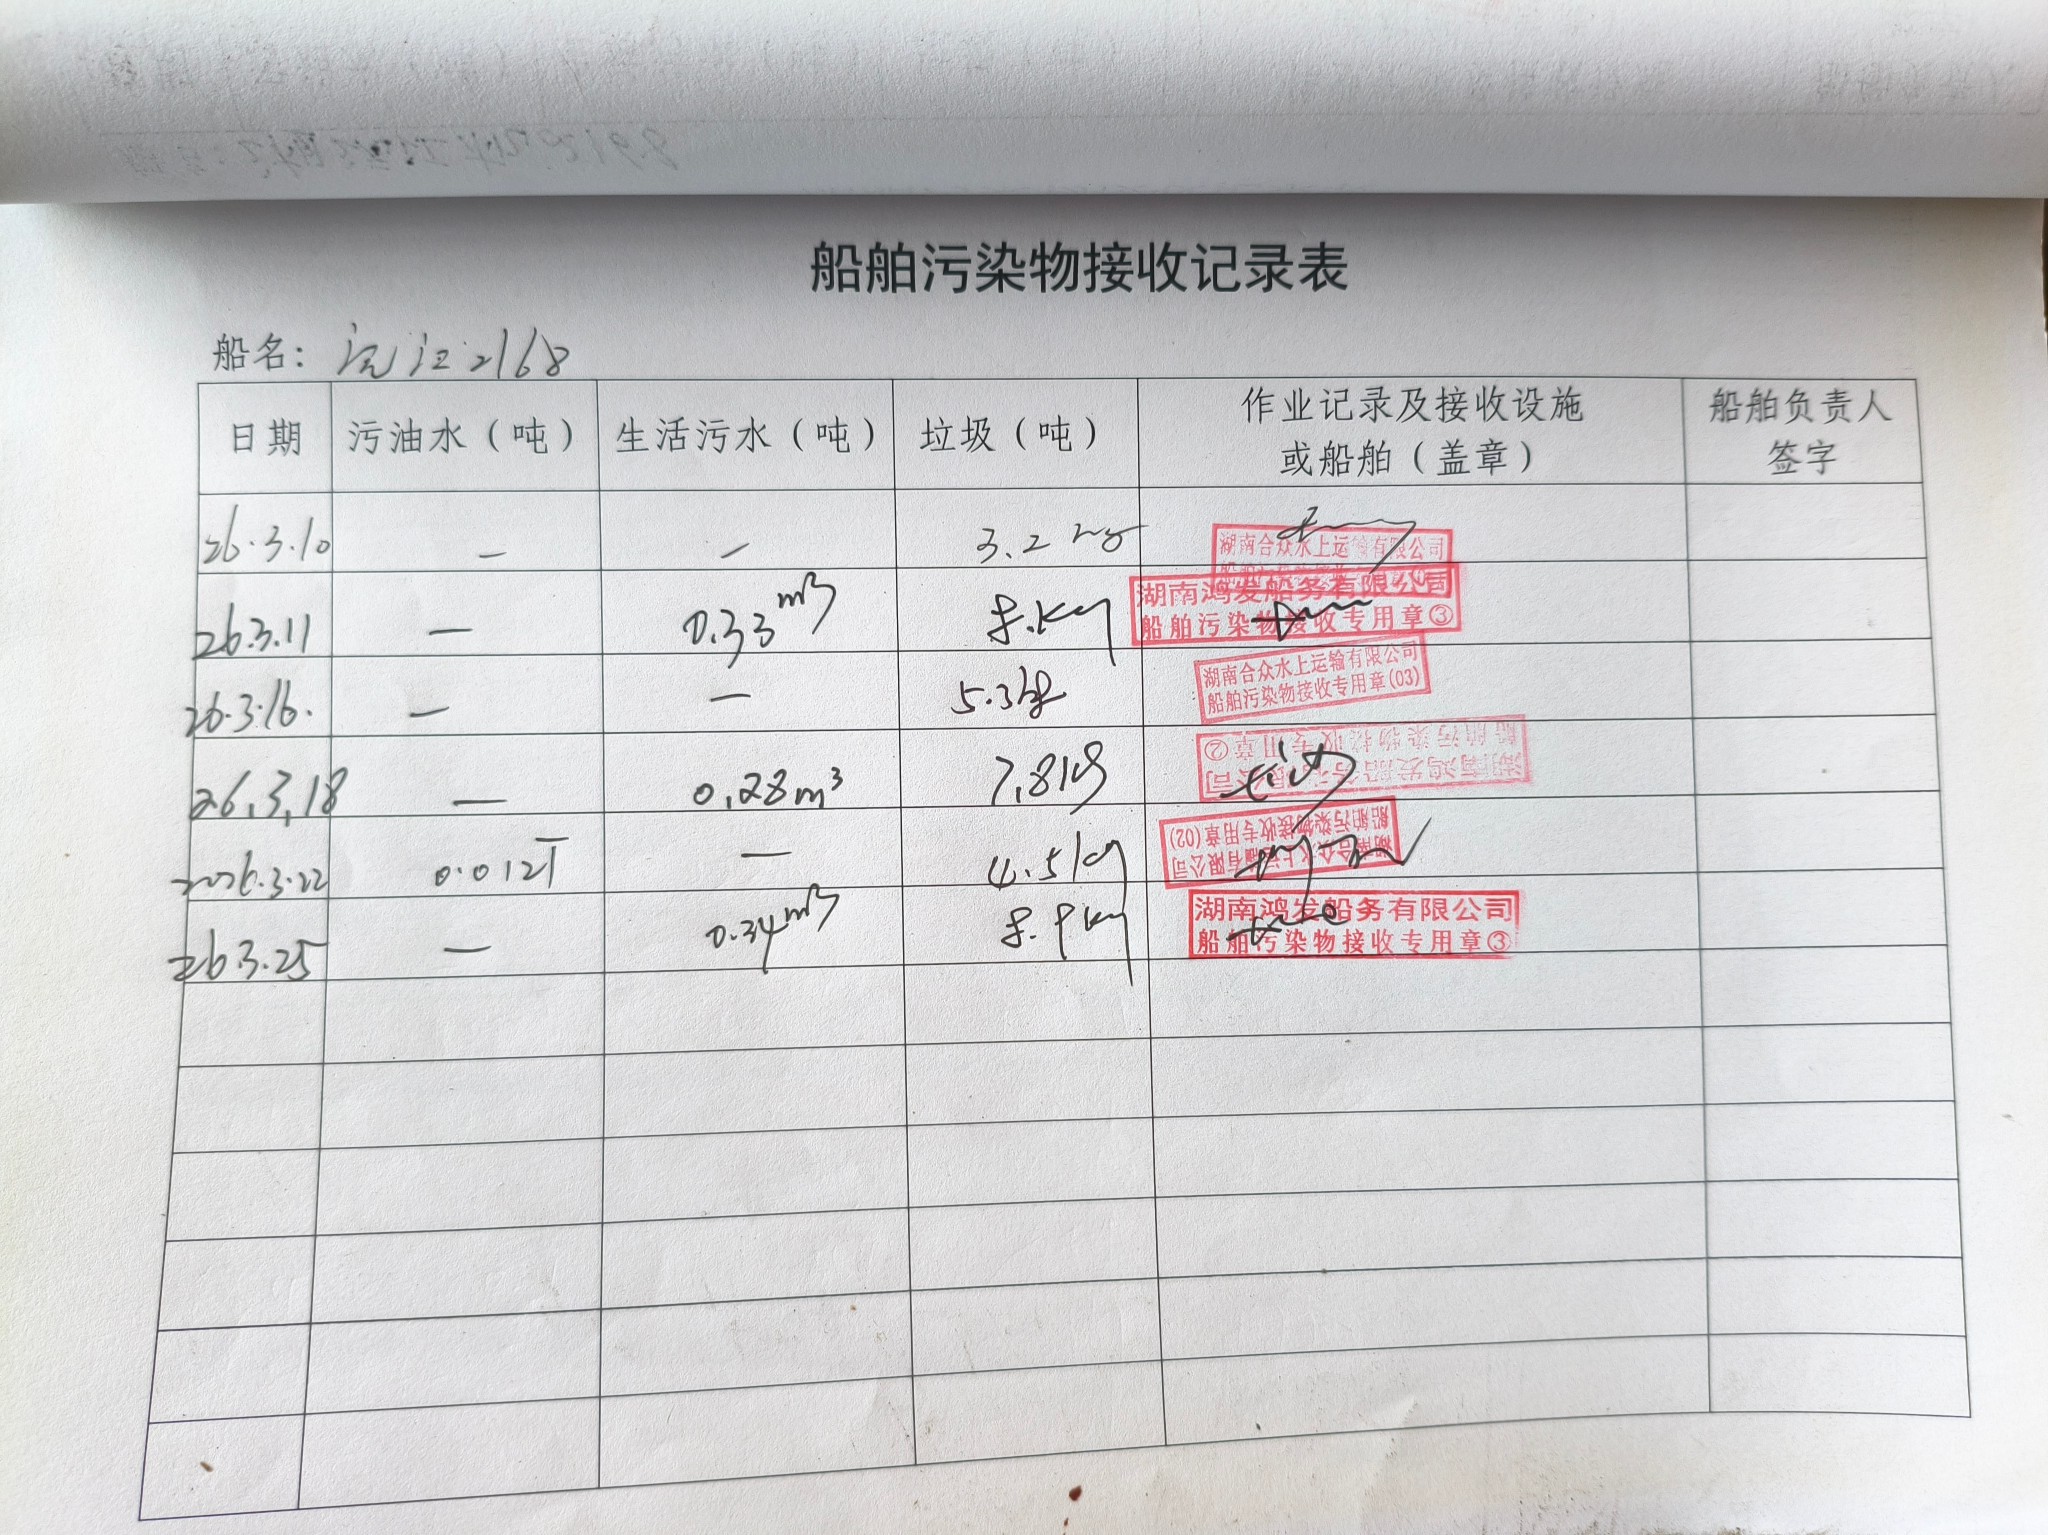 船舶污染物接收记录表
船名: 沅江2168
日期 污油水(吨) 生活污水(吨) 垃圾(吨) 作业记录及接收设施或船舶(盖章) 船舶负责人签字
26.3.10 — — 3.2 kg 湖南合众水上运输有限公司
26.3.11 — 0.33m³ 8.kg 湖南鸿发船务有限公司 船舶污染物接收专用章③
26.3.16. — — 5.3kg 湖南合众水上运输有限公司 船舶污染物接收专用章(03)
26.3,18 — 0.28m³ 7.8kg 湖南鸿发船务有限公司 船舶污染物接收专用章②
2026.3.22 0.012T — 4.5kg 湖南合众水上运输有限公司 船舶污染物接收专用章(02)
26.3.25 — 0.34m³ 8.9kg 湖南鸿发船务有限公司 船舶污染物接收专用章③